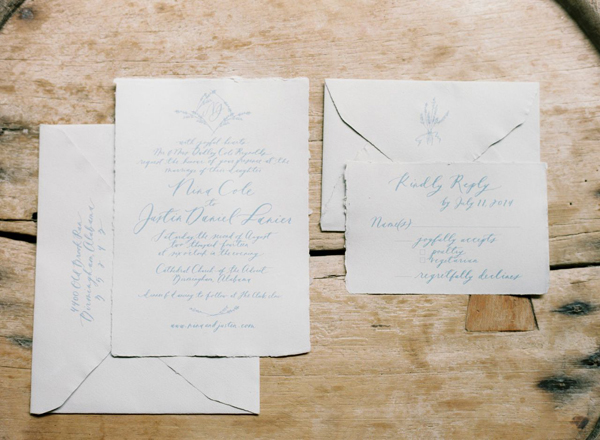 with joyful hearts
Mr & Mrs
request the honor of your presence at the
marriage of their daughter
Nina Cole
to
Justin Daniel Lanier
Saturday the second of August
two thousand fourteen
at in the evening
Cathedral Church of the Advent
Birmingham, Alabama
dinner & dancing to follow at The Club, Inc.
www.ninaandjustin.com
Birmingham, Alabama
Kindly Reply
by July 11, 2014
Name(s)
joyfully accepts
poultry
vegetarian
regretfully declines